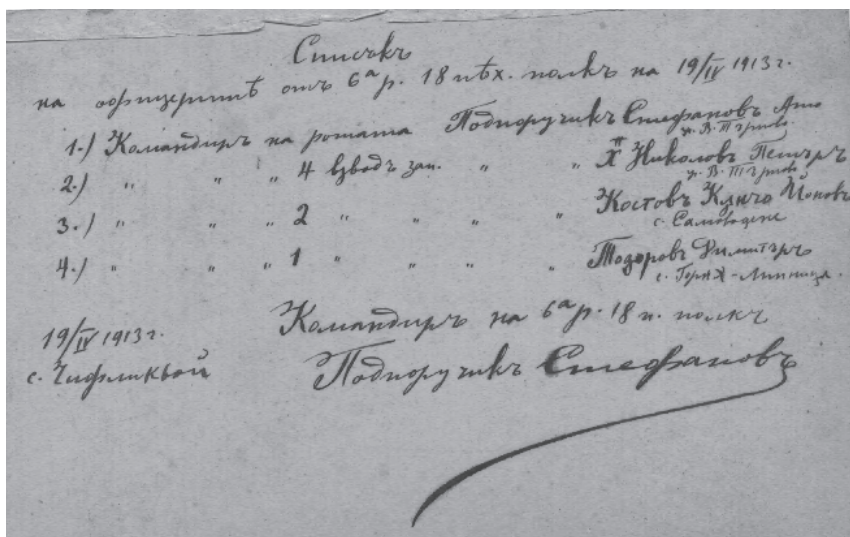 Списъкъ
на офицеритѣ отъ 6ª р. 18 пѣх. полкъ на 19/IV 1913 г.
1.) Командиръ на ротата Подпоручикъ Стефановъ
гр. В. Търново
2.) " " " 4 взводъ зап. " " Х Николовъ Петъръ
гр. В. Търново
3.) " " " 2 " " " " Костовъ Кънчо Йоновъ
с. Самоводене
4.) " " " 1 " " " " Тодоровъ Димитъръ
с. Горня-Липница.
19/IV 1913 г. Командиръ на 6ª р. 18 п. полкъ
с. Чифликьой Подпоручикъ Стефановъ